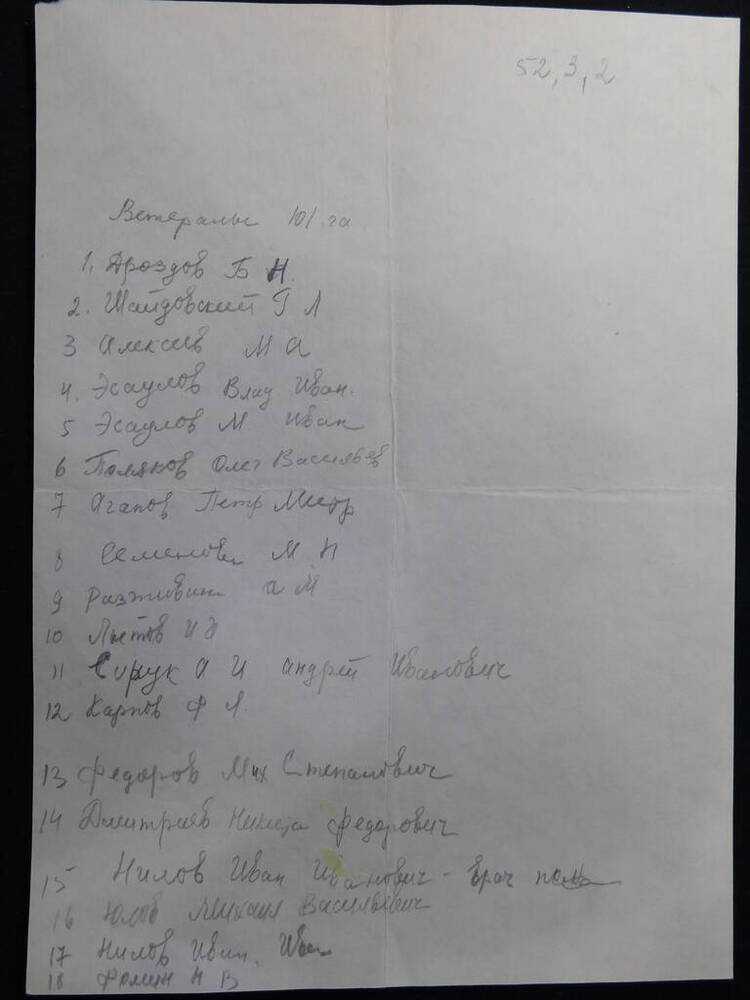 52,3,2
Ветераны 101 га
1. Дроздов Б Н.
2. Шайдовский Г Л
3 Алексеев М А
4. Эсаулов Влад Иван.
5 Эсаулов М Иван
6 Поляков Олег Васильев
7 Агапов Петр Митр
8 Семенова М Н
9 А М
10 Лыстов И
11 Сирук А И Андрей Иванович
12 Карпов Ф Л.
13 Федоров Мих Степанович
14 Дмитриев Никита Федорович
15 Нилов Иван Иванович - Врач
16 Михаил Васильевич
17 Нилов Иван. Иван
18 Фомин Н В